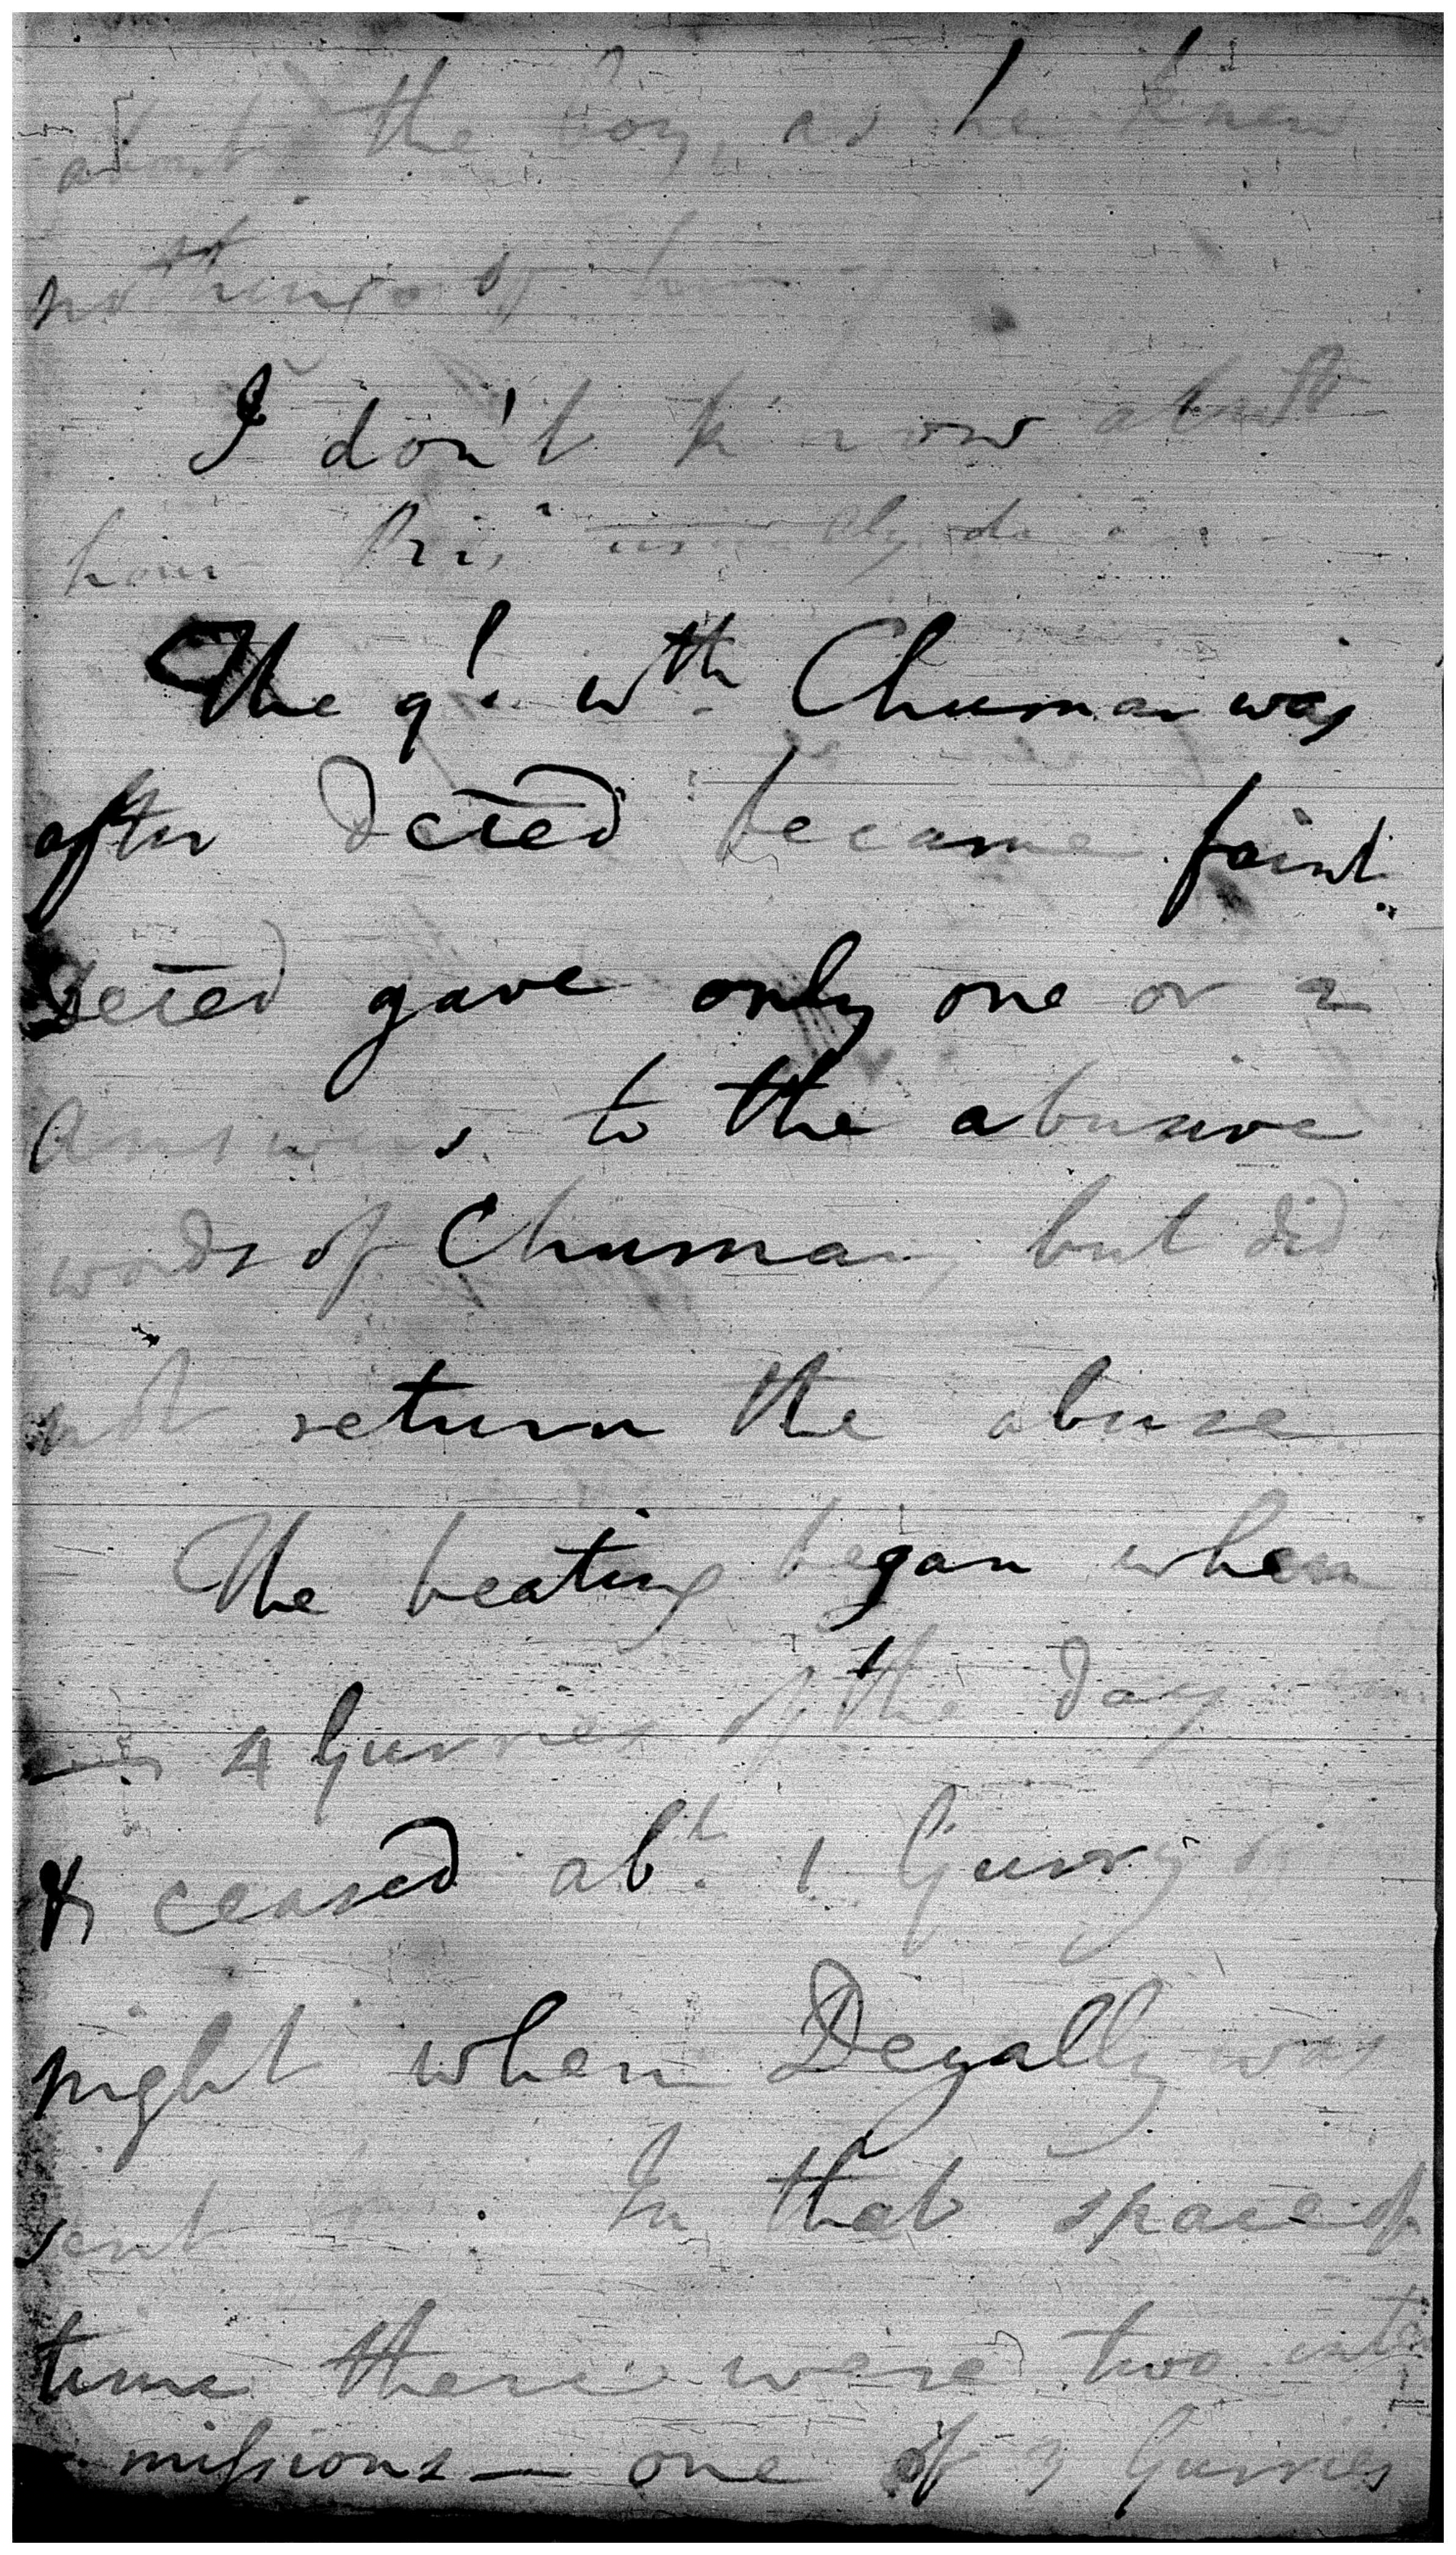 about the boy, as he knew
nothing of him
I don't know about
how Pris usually
The ql. wth Chuman was
after Deced became faint.
Deced gave only one or 2
Answers to the abusive
words of Chuman, but did
not return the abuse
The beating began when
4 Gurries of the day
& ceased abt. 1 Gurry
night when Degally was
sent for. In that space of
time there were two inter
missions — one of 3 Gurries